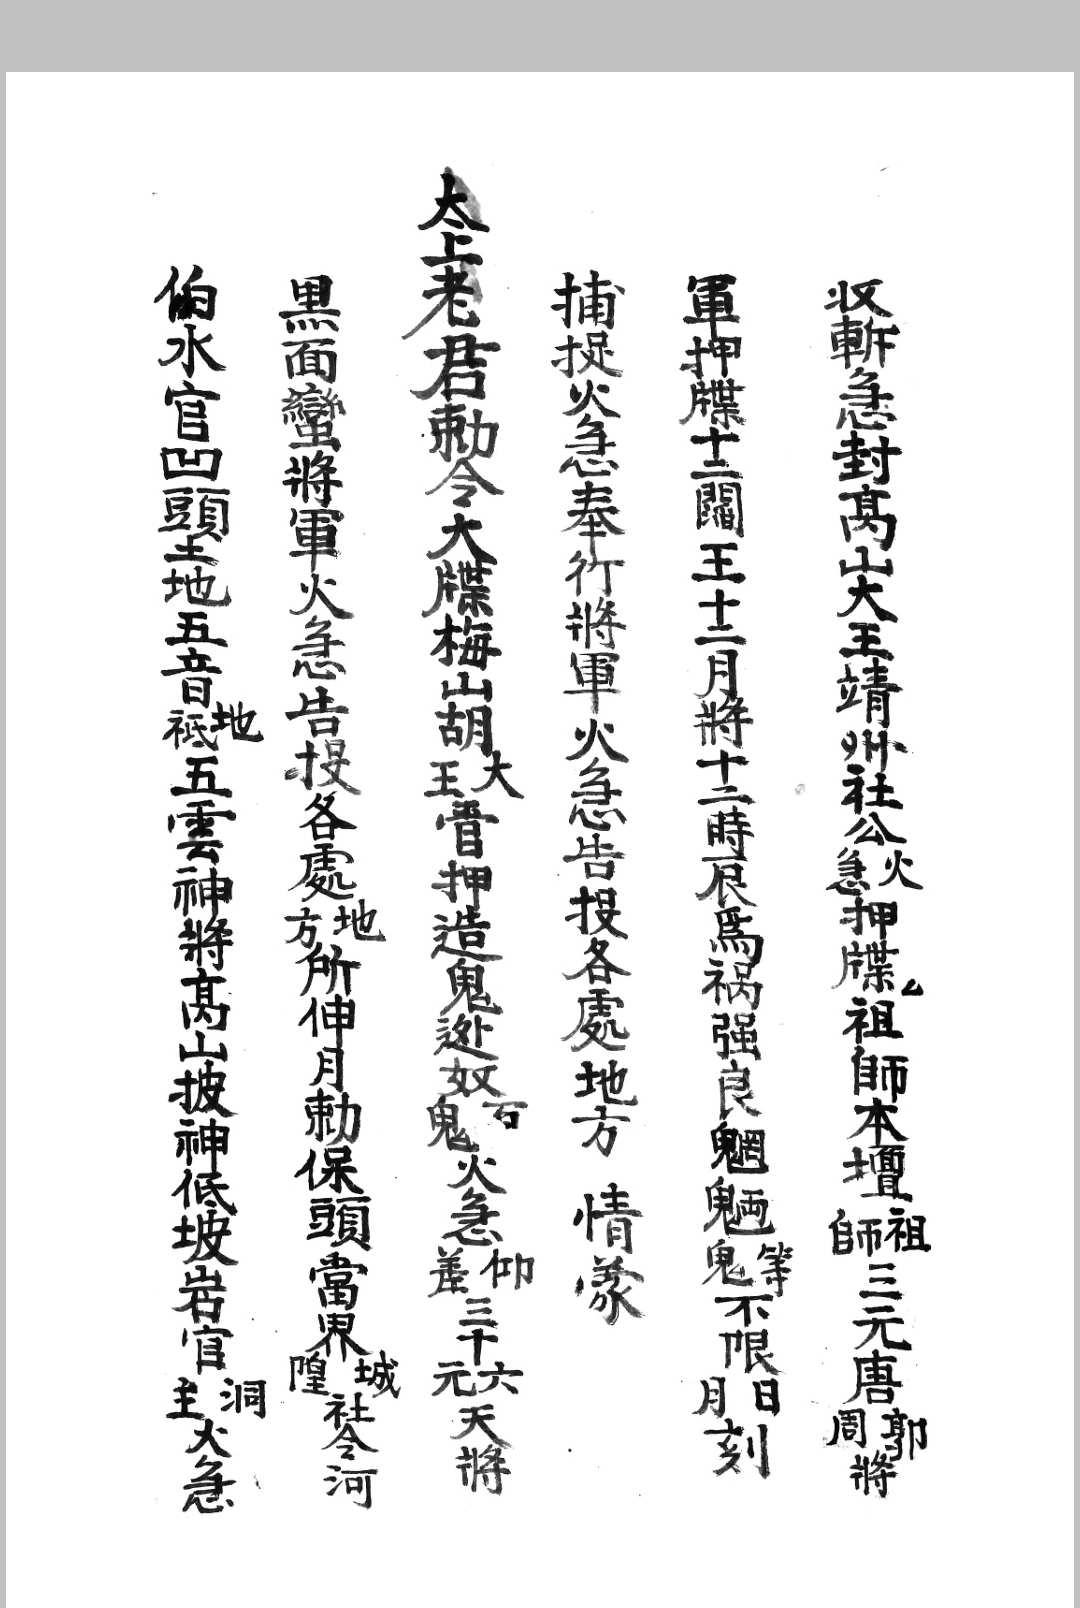 收斬急封高山大王靖州社公火急押牒厶祖師本壇祖師三元唐郭周將
軍押牒十二閣王十二月將十二時辰為禍强良魍魎鬼等不限日月刻
捕捉火急奉行將軍火急告投各處地方 情蒙
太上老君勅令大牒梅山胡大王晋押造鬼迯奴百鬼火急仰差三十六元天將
黑面蠻將軍火急告投各處地方所伸月勅保頭當界城隍社令河
伯水官凹頭土地五音地祗五雲神將高山披神低坡岩官洞主火急